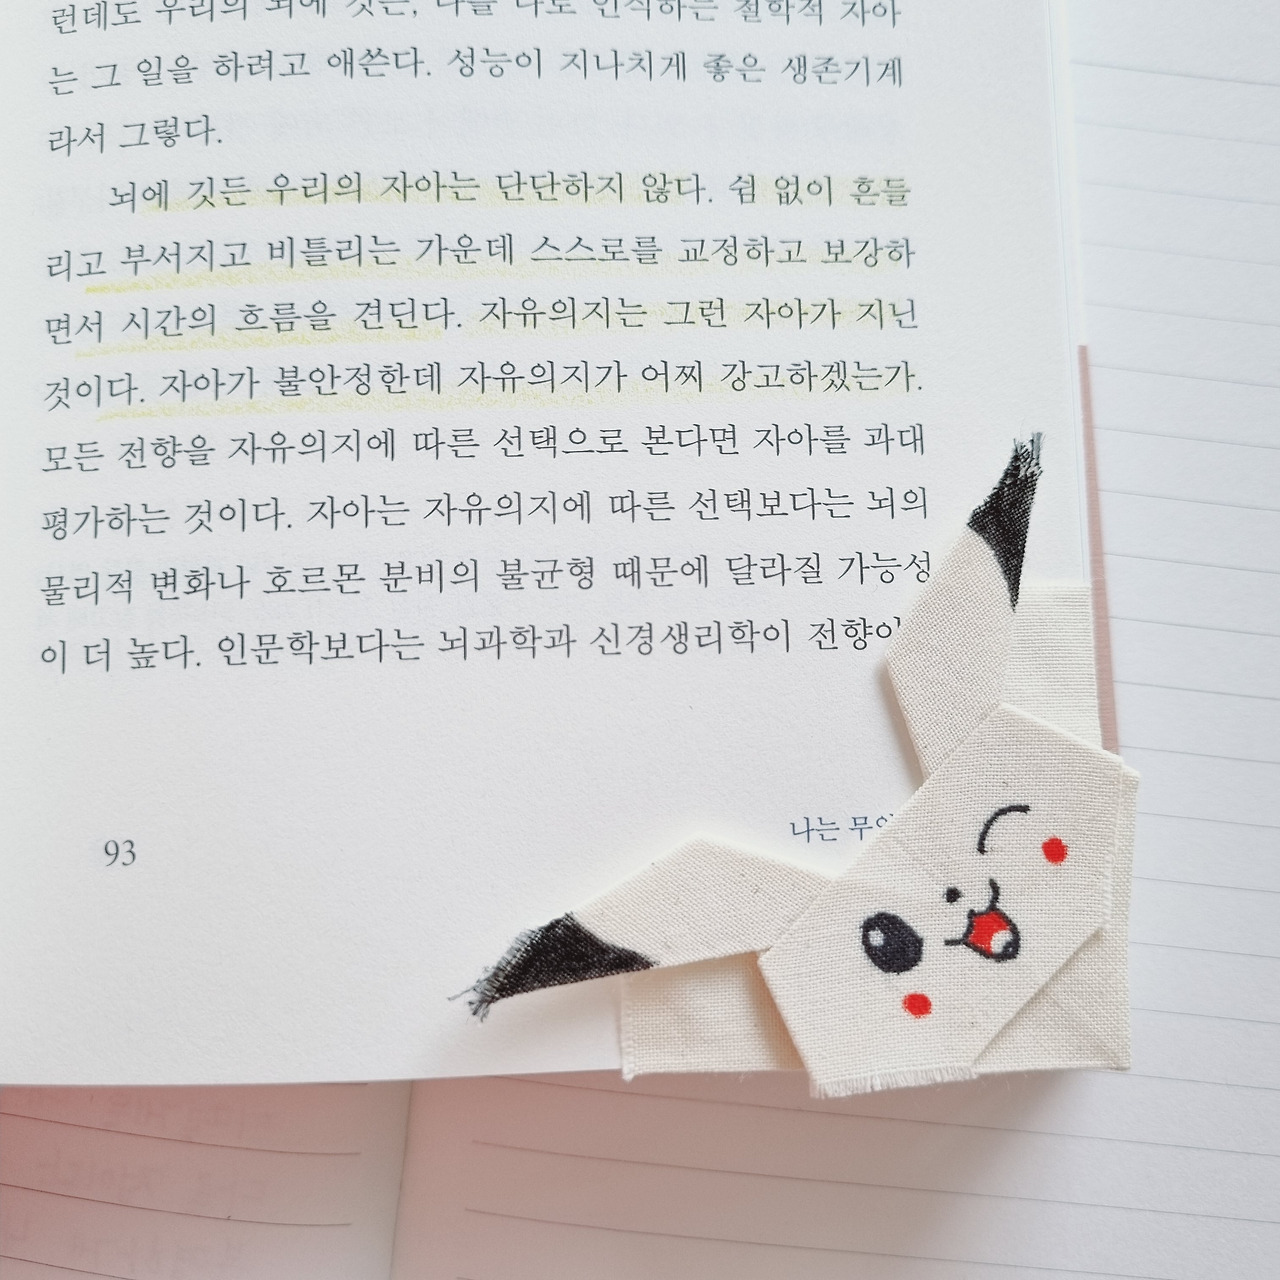 런데도 우리의 뇌에 깃든, 나를 나로 인식하는 철학적 자아
는 그 일을 하려고 애쓴다. 성능이 지나치게 좋은 생존기계
라서 그렇다.
뇌에 깃든 우리의 자아는 단단하지 않다. 쉼 없이 흔들
리고 부서지고 비틀리는 가운데 스스로를 교정하고 보강하
면서 시간의 흐름을 견딘다. 자유의지는 그런 자아가 지닌
것이다. 자아가 불안정한데 자유의지가 어찌 강고하겠는가.
모든 전향을 자유의지에 따른 선택으로 본다면 자아를 과대
평가하는 것이다. 자아는 자유의지에 따른 선택보다는 뇌의
물리적 변화나 호르몬 분비의 불균형 때문에 달라질 가능성
이 더 높다. 인문학보다는 뇌과학과 신경생리학이
93
나는